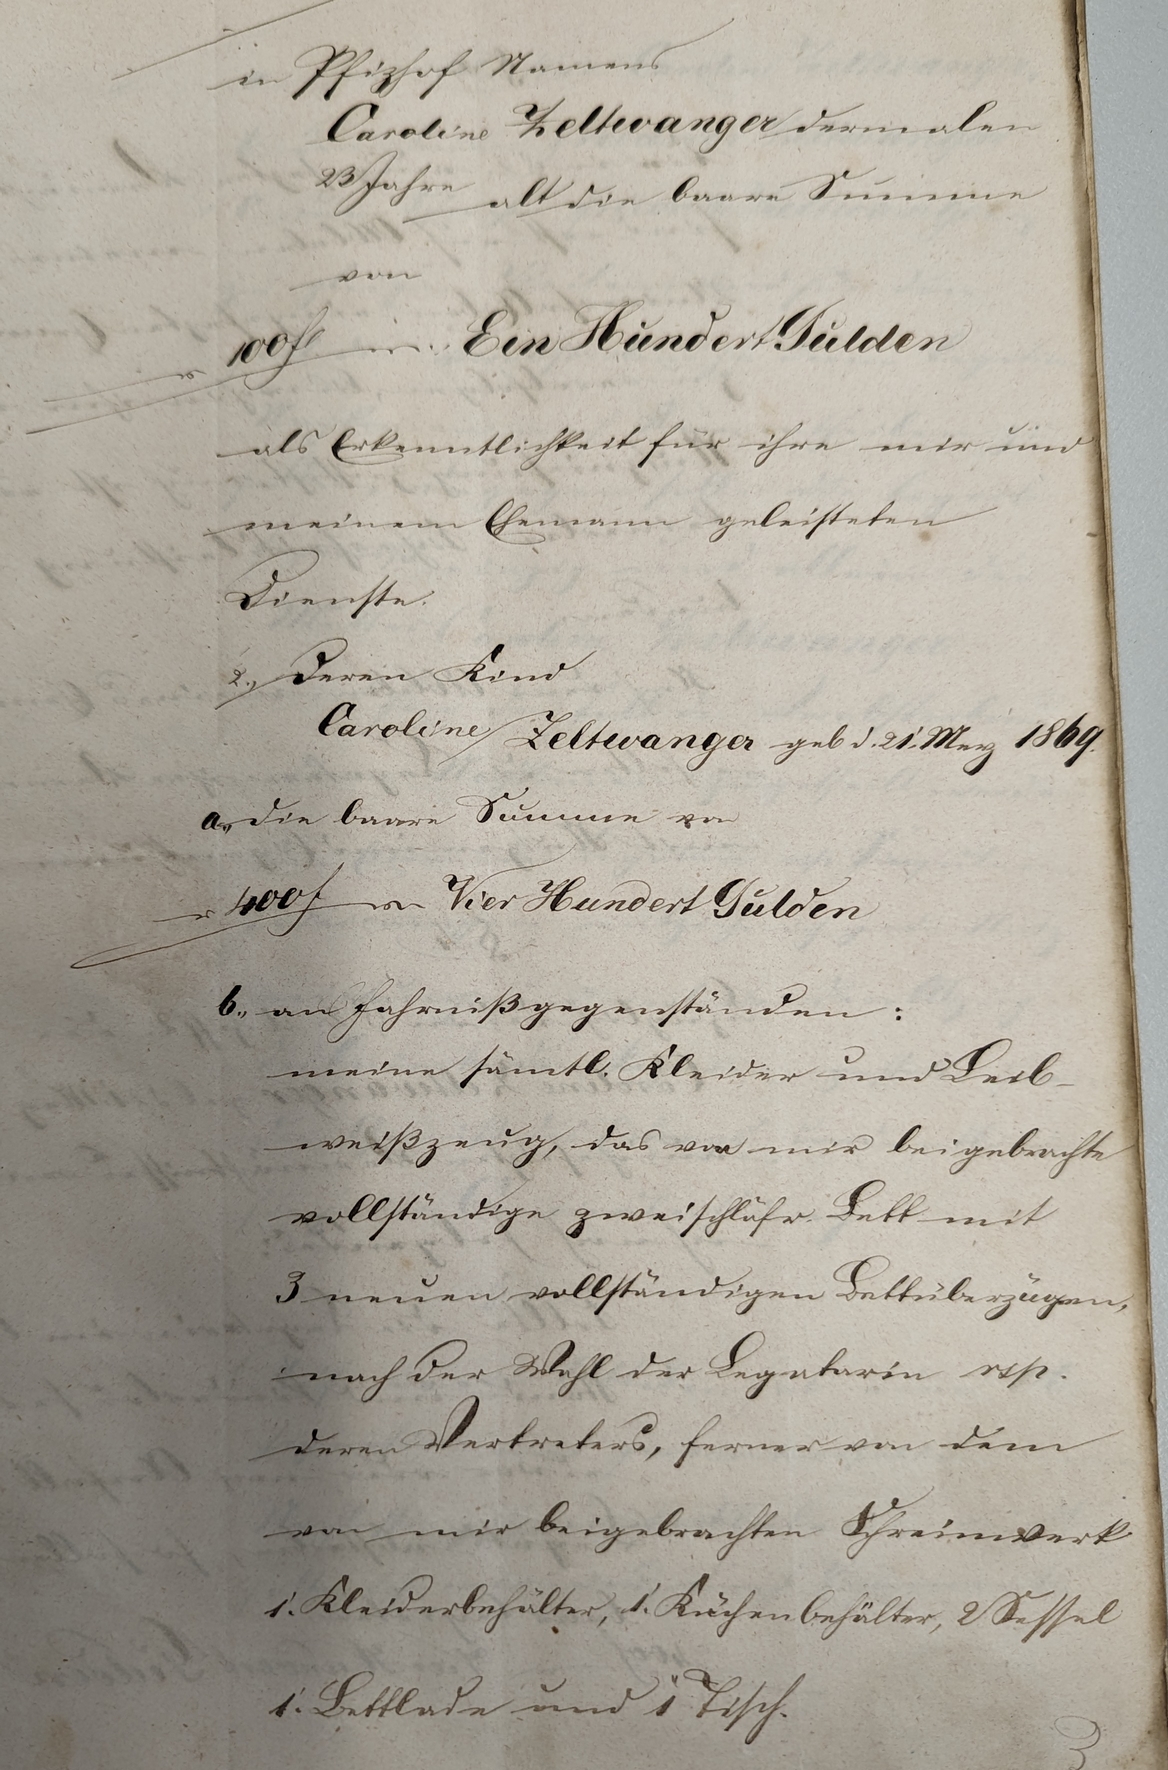 in Pfizhof Namens
Caroline Zeltwanger dermalen
23 Jahre alt die baare Summe
von
100 f Ein Hundert Gulden
als Erkenntlichkeit für ihre mir und
meinem Ehemann geleisteten
Dienste.
2., deren Kind
Caroline Zeltwanger geb d. 21. Merz 1869.
a., die baare Summe von
400 f Vier Hundert Gulden
b., an Fahrnißgegenständen:
meine sämtl. Kleider und Leib-
weißzeug, das von mir beigebrachte
vollständige zweischläfr. Bett mit
3 neuen vollständigen Bettüberzügen,
nach der Wahl der Legatarin resp.
deren Vertreters, ferner von dem
von mir beigebrachten Schreinwerk
1. Kleiderbehälter, 1. Küchenbehälter, 2 Sessel
1. Bettlade und 1 Tisch.